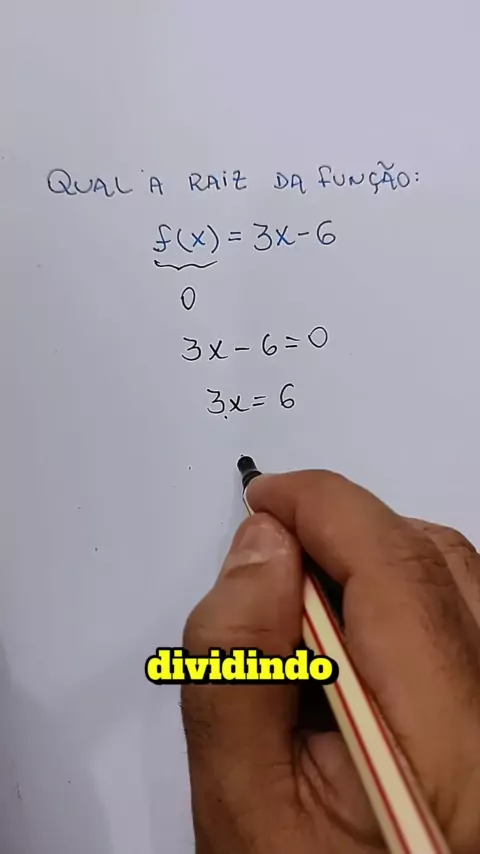 QUAL A RAIZ DA FUNÇÃO:
f(x) = 3x - 6
0
3x - 6 = 0
3x = 6
dividindo